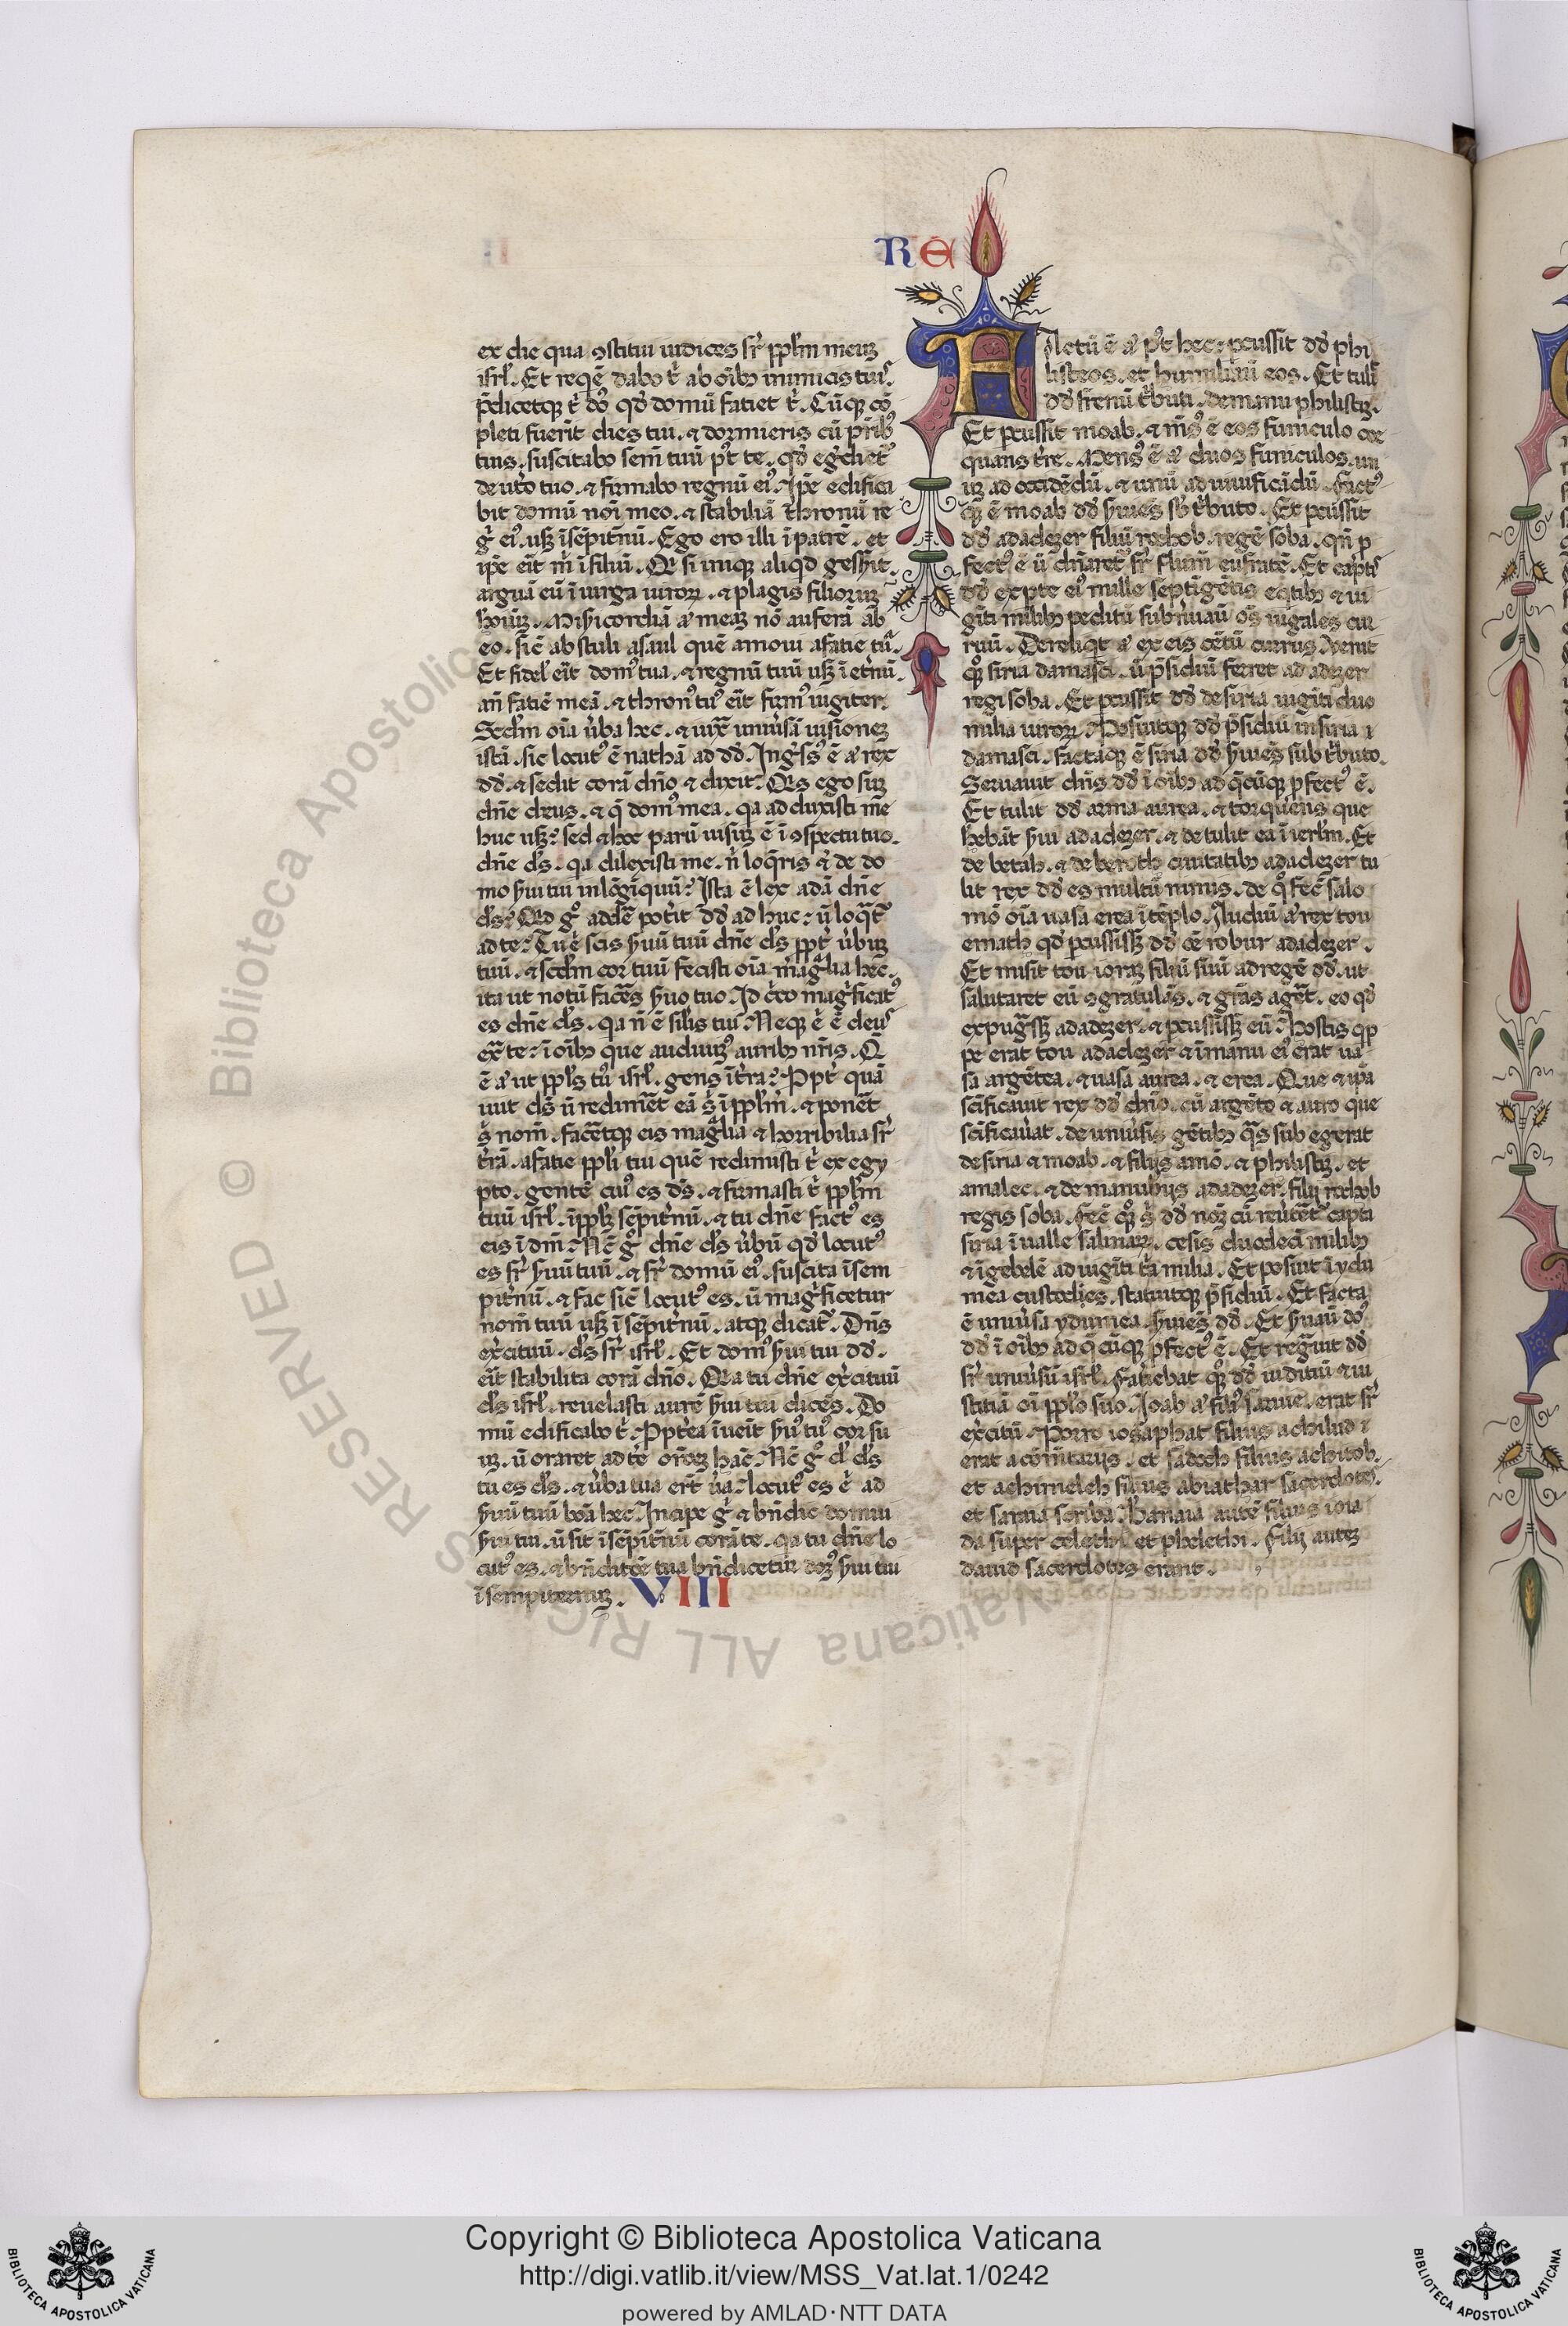 RE
ex die qua ꝯstitui iudices sr̄ pplm̄ meuꝫ
isrl̄. Et reqē dabo t̄ ab oīb inimicis tuis.
p̄dicetqꝫ t̄ dō qd̄ domū fatiet t̄. Cūqꝫ cō
pleti fuerīt dies tui. ⁊ dormieris cū prīb
tuis. suscitabo semē tuū pꝰt te. qd̄ egrediet̄
de utō tuo. ⁊ firmabo regnū eiꝰ. Ipē edifica
bit domū noī meo. ⁊ stabiliā thronū re
gī eiꝰ. usqꝫ ī sēpitnū. Ego ero illi ī patrē. et
ipē eīt m̄ ī filiū. Qi si inique aliqd gesserit
arguā eū ī uirga uiroꝝ. ⁊ plagis filioruꝫ
hoīuꝫ. Misicordiā aꝰ meaꝫ nō auferā ab
eo. sic̄ abstuli a saul quē amoui a fatie tua.
Et fidel' eīt domꝰ tua. ⁊ regnū tuū usqꝫ ī etnū
an̄ fatiē meā. ⁊ thronꝰ tuꝰ eīt firmꝰ iugiter.
Scdm̄ oīa ūba hec. ⁊ iux̄ uniūsā uisioneꝫ
istā. sic locutꝰ ē nathā ad dd̄. Ingr̄sꝰ ē aꝰ rex
dd̄. ⁊ sedit corā dn̄o ⁊ dixit. Qis ego suꝫ
dn̄e deus. ⁊ q̄ domꝰ mea. qa adduxisti me
huc usqꝫ? sed ⁊ hec parū uisuꝫ ē ī ꝯspectu tuo.
dn̄e ds̄. qa dilexisti me. n̄ loq̄ris ⁊ de do
mo ẜui tui in lōgīquū? Ista ē lex adā dn̄e
ds̄? Qd gꝰ addē potīt dd̄ ad huc? ū loq̄t̄
ad te? Tu ē scis ẜuū tuū dn̄e ds̄ ppt̄ ūbuꝫ
tuū. ⁊ scdm̄ cor tuū fecisti oīa magnalia hec.
ita ut notū facēs ẜuo tuo. Id cīco magificatꝰ
es dn̄e ds̄. qa n̄ ē silīs tui. Neqꝫ ē ē deus
ext̄ te. ī oīb que audiuimꝰ auribꝫ nr̄is. Q̄
ē aꝰ ut ppls̄ tuꝰ isrl̄. gens ī tr̄a? Ppt̄ quā
iuit ds̄ ū redimēt eā s̄ ī pplm̄. ⁊ ponēt
s̄ nom̄. facētqꝫ eis magnalia ⁊ horribilia sr̄
t̄rā. a fatie ppli tui quē redimisti t̄ ex egy
pto. gentē cuiꝰ es ds̄. ⁊ firmasti t̄ pplm̄
tuū isrl̄. ī pplꝫ sēpitnū. ⁊ tu dn̄e factꝰ es
eis ī dm̄. Nc̄ gꝰ dn̄e ds̄ ūbū qd̄ locutꝰ
es sr̄ ẜuū tuū. ⁊ sr̄ domū eiꝰ. suscita ī sem
pitnū. ⁊ fac sic̄ locutꝰ es. ū magificetur
nom̄ tuū usqꝫ ī sēpitnū. atqꝫ dicat̄. Dn̄s
exc̄ituū. ds̄ sr̄ isrl̄. Et domꝰ ẜui tui dd̄.
eīt stabilita corā dn̄o. Qia tu dn̄e exc̄ituū
ds̄ isrl̄. reuelasti aurē ẜui tui dicēs. Do
mū edificabo t̄. Ppt̄ea īuēit ẜuꝰ tuꝰ cor su
uꝫ. ū oraret ad te orōeꝫ hāc. Nc̄ gꝰ dn̄ ds̄
tu es ds̄. ⁊ ūba tua erūt ūa. locutꝰ es ē ad
ẜuū tuū bōa hec. Incipe gꝰ ⁊ bn̄dic domui
ẜui tui. ū sit ī sēpitnū corā te. qa tu dn̄e lo
cutꝰ es. ⁊ bn̄dictiōe tua bn̄dicetur domꝰ ẜui tui
ī sempiternuꝫ. VIII
Actū ē aꝰ pꝰt hec. ꝑcussit dd̄ phi
listeos. et humiliauit eos. Et tulit
dd̄ frenū t̄buti. de manu philistiꝫ.
Et ꝑcussit moab. ⁊ mēsꝰ ē eos funiculo coe
quans t̄re. Mensꝰ ē aꝰ duos funiculos. un
uꝫ ad occidēdū. ⁊ unū ad uiuificādū. Factꝰ
qꝫ ē moab dd̄ ẜuiēs sb̄ t̄buto. Et ꝑcussit
dd̄ adadezer filiū roohob. regē soba. qn̄ p
fectꝰ ē ū dn̄aret̄ sr̄ flum̄ eufratē. Et captis
dd̄ ex pte eiꝰ mille septīgētis eqtibꝫ ⁊ ui
gīti milibꝫ peditū subneruauit oēs iugales cur
ruū. Dereliqt aꝰ ex eis cētū currus. Venit
qꝫ siria damasci. ū p̄sidiū ferret adadezer
regi soba. Et ꝑcussit dd̄ de siria uigiti duo
milia uiroꝝ. Posuitqꝫ dd̄ p̄sidiū in siria
damasci. factaqꝫ ē siria dd̄ ẜuiēs sub t̄buto.
Seruauit dn̄s dd̄ ī oībꝫ ad q̄cūqꝫ pfectꝰ ē.
Et tulit dd̄ arma aurea. ⁊ torques que
hēbāt ẜui adadezer. ⁊ detulit ea ī ierl̄m. Et
de betah. ⁊ de beroth ciuitatibꝫ adadezer tu
lit rex dd̄ es multū nimis. de qꝰ fec̄ salo
mō oīa uasa erea ī tēplo. Audiuit aꝰ rex tou
emath qd̄ ꝑcussissꝫ dd̄ oē robur adadezer.
Et misit tou ioraꝫ filiū suū ad regē dd̄. ut
salutaret eū ꝯgratulās. ⁊ gr̄as agēt. eo qd̄
expugnassꝫ adadezer. ⁊ ꝑcussissꝫ eū. Hostis qp
pe erat tou adadezer ⁊ ī manu eiꝰ erāt ua
sa argētea. ⁊ uasa aurea. ⁊ erea. Que ⁊ ipā
scīficauit rex dd̄ dn̄o. cū argēto ⁊ auro que
scīficauāt. de uniūsis gētibꝫ q̄s subegerat
de siria ⁊ moab. ⁊ filijs amō. ⁊ philistiꝫ. et
amalec. ⁊ de manubijs adadezer. filij roohob
regis soba. Fec̄ qꝫ s̄ dd̄ nom̄ cū reūtēt̄ capta
siria ī ualle salinaꝝ. cesis duodeci milibꝫ
⁊ ī gebelē ad uigiti t̄a milia. Et posuit ī ydu
mea custodies. statuitqꝫ p̄sidiū. Et facta
ē uniūsa ydumea. ẜuiēs dd̄. Et ẜuauit dō
dd̄ ī oībꝫ ad q̄cūqꝫ pfectꝰ ē. Et regnauit dd̄
sr̄ uniūsū isrl̄. Fatiebat qꝫ dd̄ iuditiū ⁊ iu
stitiā oī ppl̄o suo. Ioab aꝰ filiꝰ saruie. erat sr̄
exc̄itū. Porro iosaphat filius achilud
erat a cōmētarijs. et sadoch filius achitob.
et achimelech filius abiathar sacerdotes.
et saraia scriba. Banaia autē filius ioia
da super celethi et phelethi. Filij auteꝫ
dauid sacerdotes erant.
Copyright © Biblioteca Apostolica Vaticana
http://digi.vatlib.it/view/MSS_Vat.lat.1/0242
powered by AMLAD·NTT DATA
© Biblioteca Apostolica Vaticana ALL RIGHTS RESERVED
BIBLIOTECA APOSTOLICA VATICANA
BIBLIOTECA APOSTOLICA VATICANA